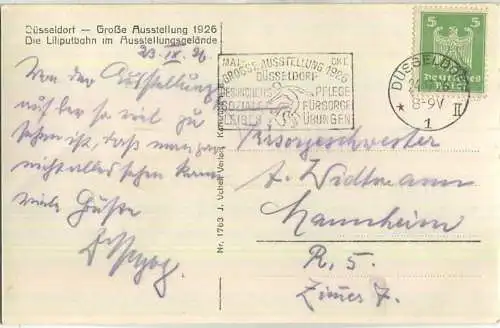 Düsseldorf — Große Ausstellung 1926
Die Liliputbahn im Ausstellungsgelände
23. IX. 26
Von der Ausstellung
auf der so viel zu
sehen ist, daß man gar
nicht alles sehen kann
viele Grüße
Nr. 1763 J. Velten Verlag, Karlsruhe
GROSSE AUSSTELLUNG 1926
DÜSSELDORF
GESUNDHEITS PFLEGE
SOZIALE FÜRSORGE
LEIBES ÜBUNGEN
5 5
Deutsches
Reich
DÜSSELDORF
8-9V
* 1 II
Fürsorgeschwester
A. Widtmann
Mannheim
R. 5.
Zimer 7.